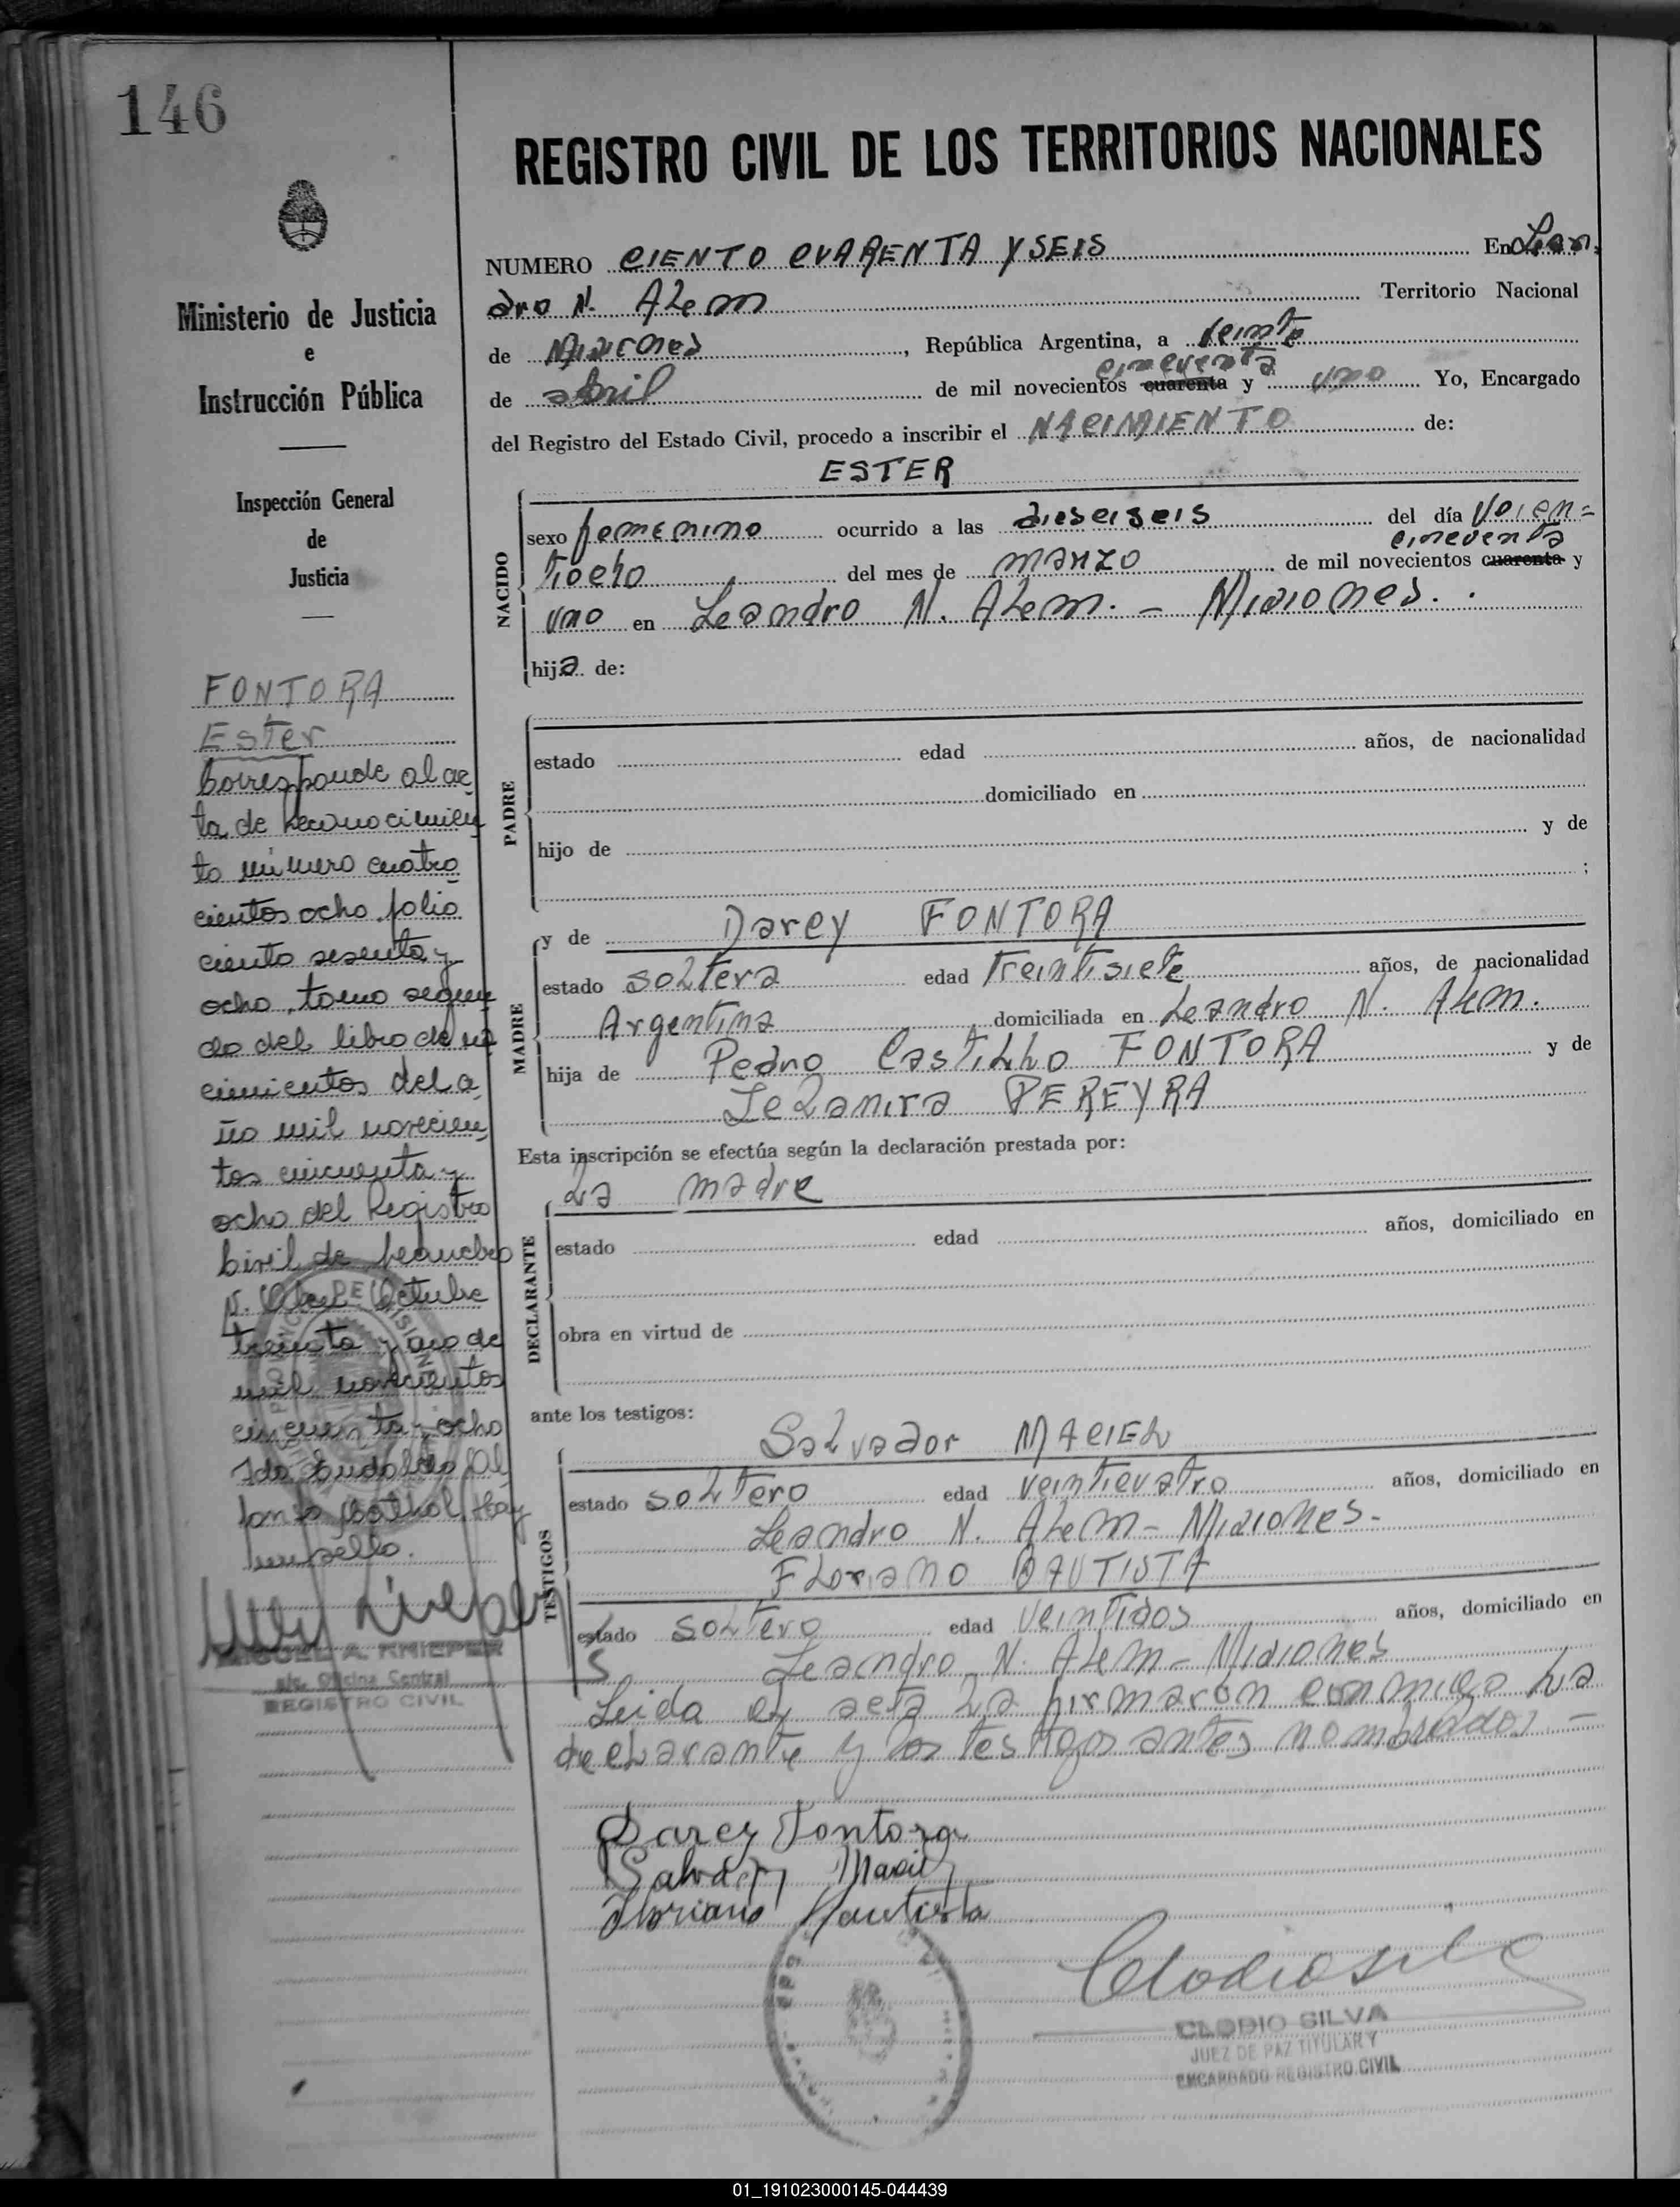 146
REGISTRO CIVIL DE LOS TERRITORIOS NACIONALES
Ministerio de Justicia
e
Instrucción Pública
Inspección General
de
Justicia
FONTORA
Ester
Corresponde al ac
ta de reconocimien
to número cuatro
cientos ocho folio
ciento sesenta y
ocho, tomo segun
do del libro de na
cimientos del a
ño mil novecien
tos cincuenta y
ocho del Registro
Civil de Leandro
N. Alem Octubre
treinta y uno de
mil novecientos
cincuenta y ocho
Hay
un sello.
MIGUEL A. KNIEPER
a/c. Oficina Central
REGISTRO CIVIL
NUMERO CIENTO CUARENTA Y SEIS En Lean
dro N. Alem Territorio Nacional
de Misiones, República Argentina, a veinte
cincuenta
de abril de mil novecientos cuarenta y uno Yo, Encargado
del Registro del Estado Civil, procedo a inscribir el NACIMIENTO de:
ESTER
NACIDO
sexo femenino ocurrido a las dieseiseis del día Veien=
cincuenta
tiocho del mes de marzo de mil novecientos cuarenta y
uno en Leandro N. Alem. - Misiones.
hija de:
PADRE
estado edad años, de nacionalidad
domiciliado en
hijo de y de
;
y de Darcy FONTORA
MADRE
estado soltera edad treintisiete años, de nacionalidad
Argentina domiciliada en Leandro N. Alem.
hija de Pedro Castilho FONTORA y de
PEREYRA
Esta inscripción se efectúa según la declaración prestada por:
la madre
DECLARANTE
estado edad años, domiciliado en
obra en virtud de
ante los testigos:
Salvador MACIEL
TESTIGOS
estado soltero edad veinticuatro años, domiciliado en
Leandro N. Alem - Misiones-
Floriano BAUTISTA
estado soltero edad veintidos años, domiciliado en
Leandro N. Alem - Misiones
Leida el acta la firmaron conmigo la
declarante y los testigos antes nombrados -
Darcy Fontora
Salvador Maciel
Floriano Bautista
Clodio Silva
CLODIO SILVA
JUEZ DE PAZ TITULAR Y
ENCARGADO REGISTRO CIVIL
01_191023000145-044439